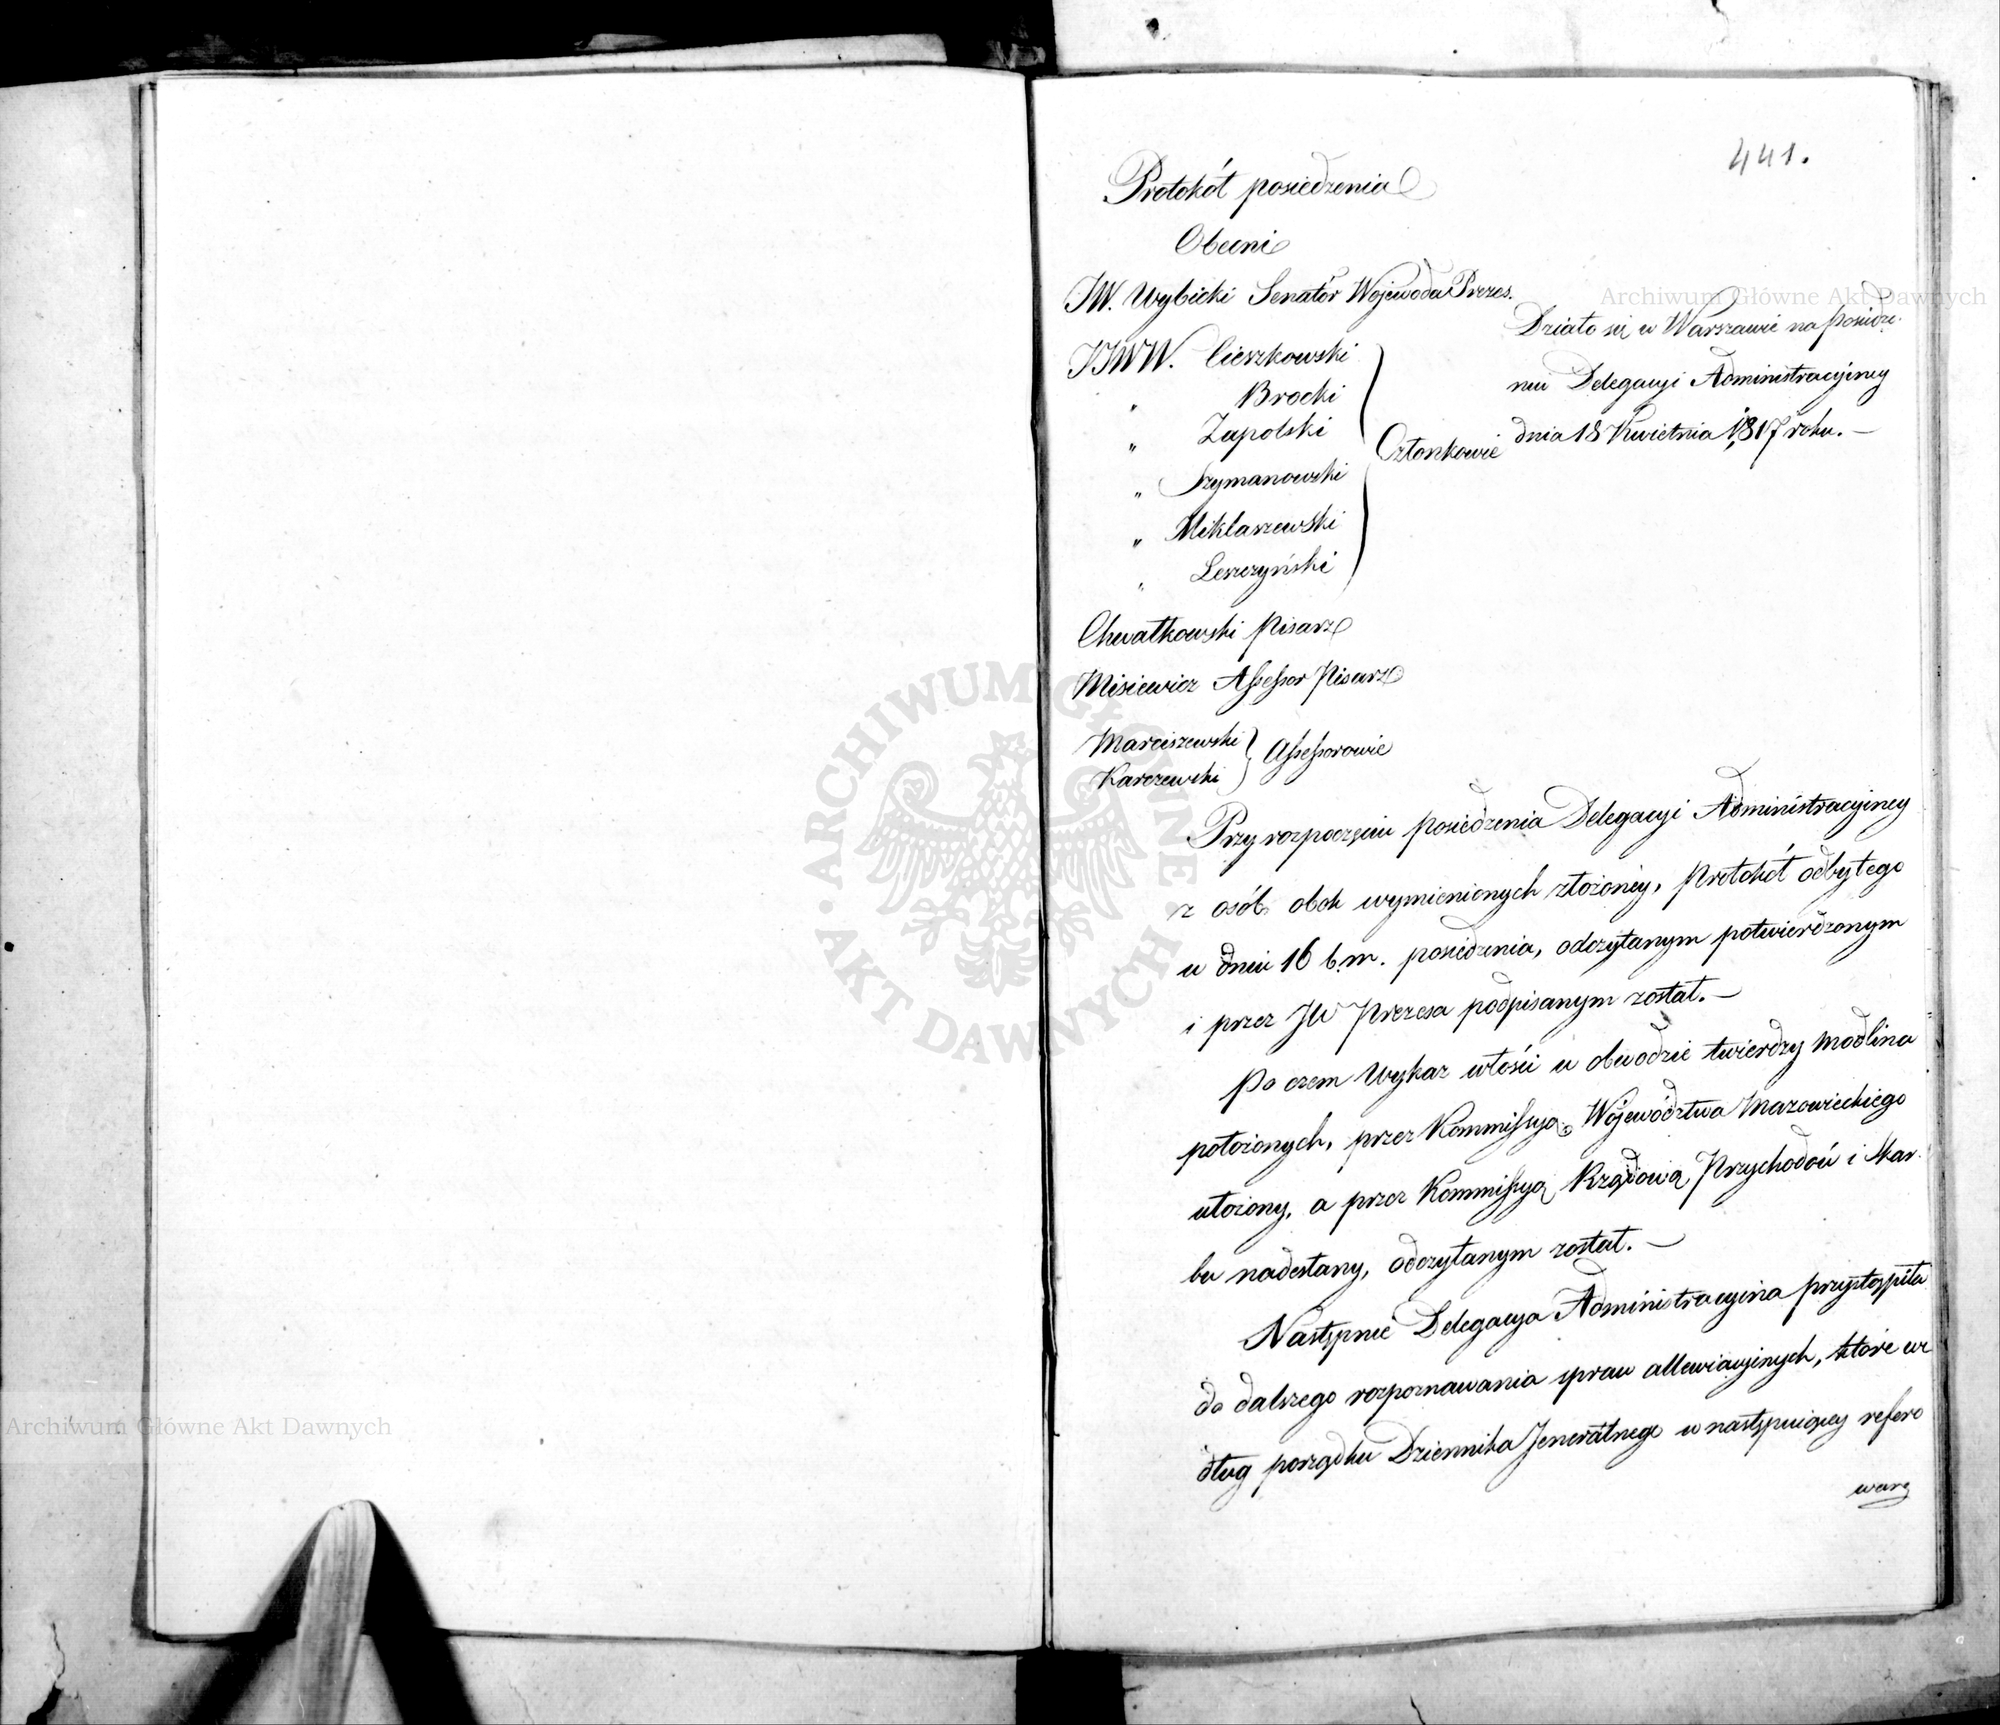 441.
Protokół posiedzenia
Obecni
JW. Wybicki Senator Wojewoda Prezes.
Działo się w Warszawie na posiedze-
niu Delegacyi Administracyiney
dnia 18 Kwietnia 1817 roku. —
JJWW. Cieszkowski
" Brocki
" Zapolski
Członkowie
" Szymanowski
" Miklaszewski
" Leszczyński
Chwałkowski Pisarz
Misiewicz Assessor Pisarz
Marciszewski
Karczewski
Assessorowie
Przy rozpoczęciu posiedzenia Delegacyi Administracyiney
z osób obok wymienionych złożoney, Protokół odbytego
w dniu 16 b.m. posiedzenia, odczytanym potwierdzonym
i przez JW Prezesa podpisanym został. —
Po czem Wykaz włości w obwodzie twierdzy Modlina
położonych, przez Kommissyą Województwa Mazowieckiego
ułożony, a przez Kommissyą Rządową Przychodów i Skar-
bu nadesłany, odczytanym został. —
Następnie Delegacya Administracyina przystąpiła
do dalszego rozpoznawania spraw allewiacyinych, które we
dług porządku Dziennika Jeneralnego w następuiącey refero
waną
Archiwum Główne Akt Dawnych
Archiwum Główne Akt Dawnych
ARCHIWUM GŁÓWNE · AKT DAWNYCH ·